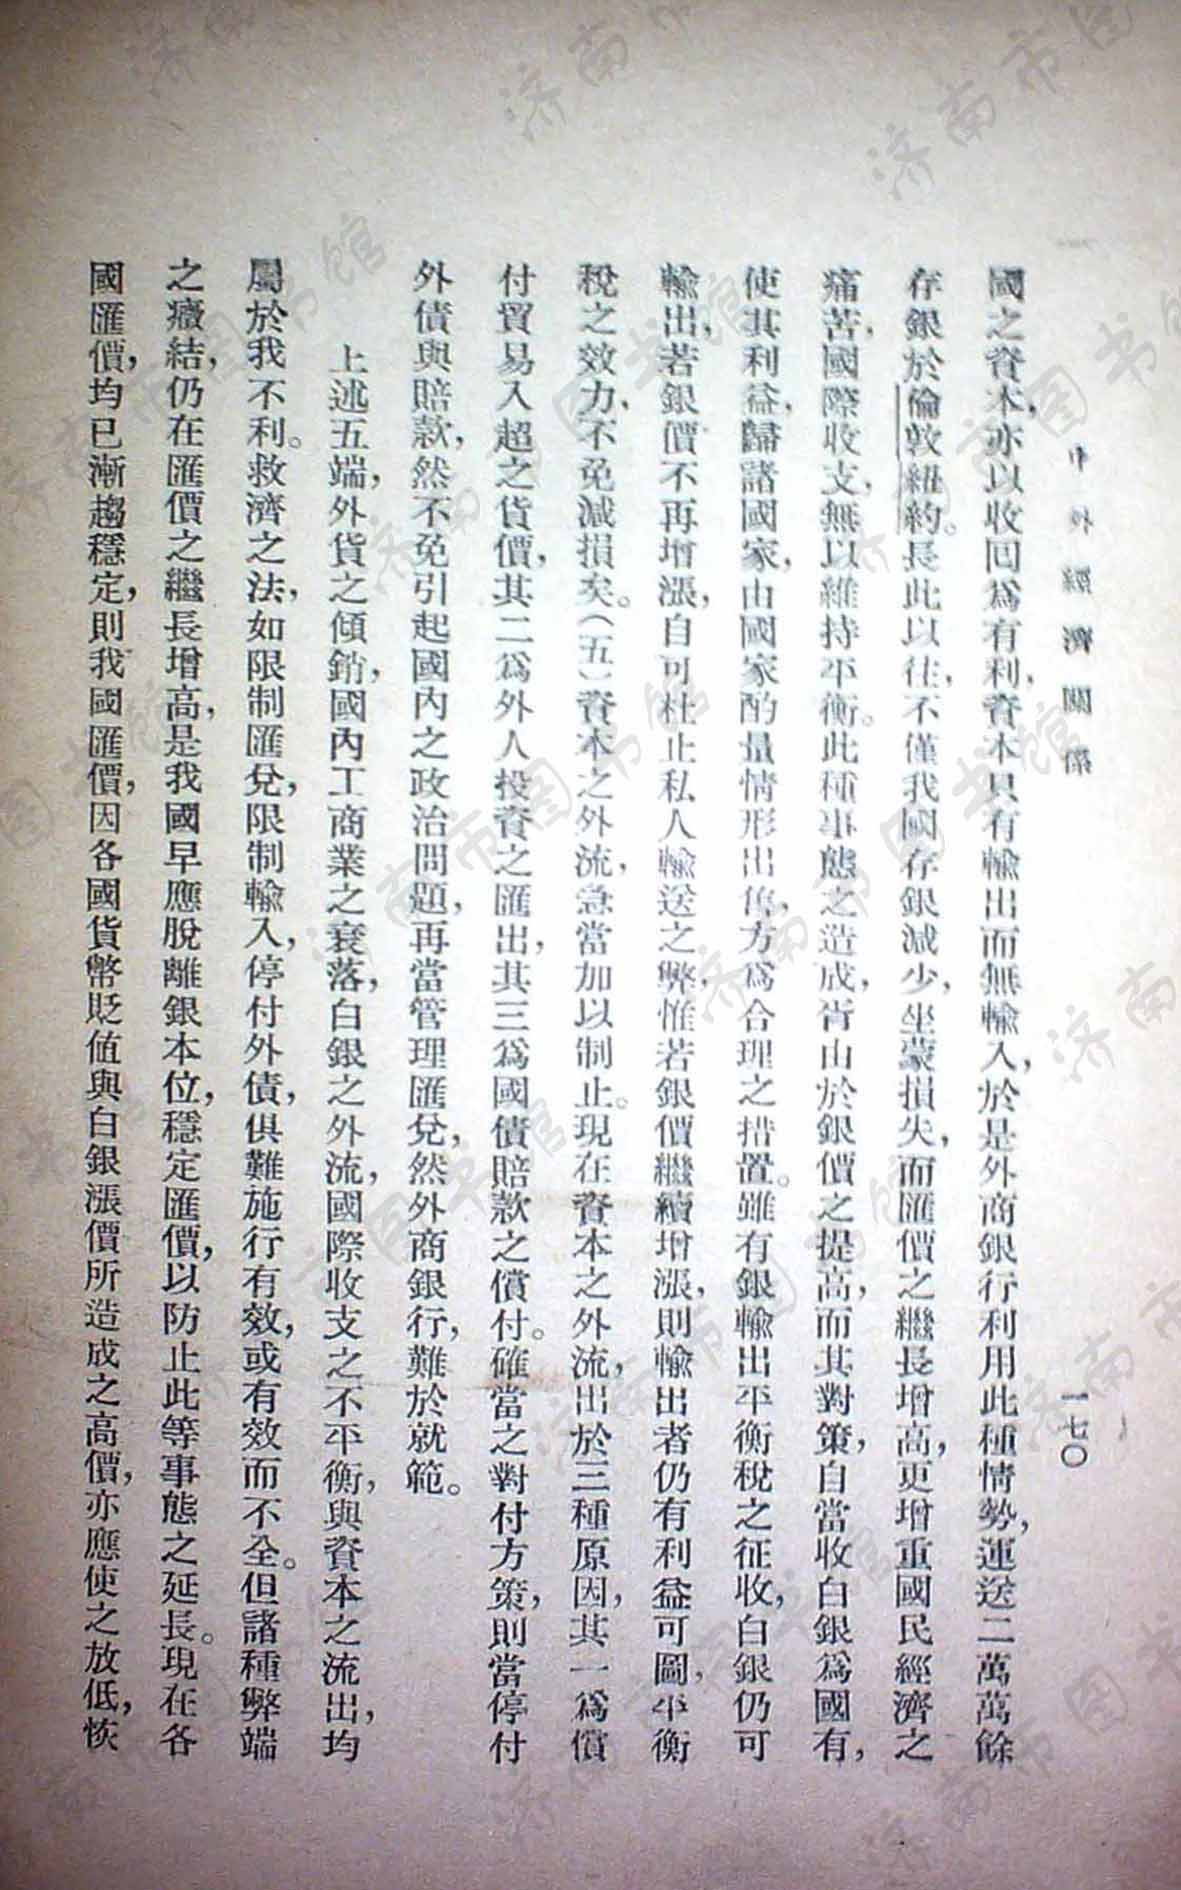 中外經濟關係
一七〇
國之資本，亦以收回爲有利，資本只有輸出而無輸入，於是外商銀行利用此種情勢，運送二萬萬餘
存銀於倫敦紐約。長此以往，不僅我國存銀減少，坐蒙損失，而匯價之繼長增高，更增重國民經濟之
痛苦，國際收支，無以維持平衡。此種事態之造成，胥由於銀價之提高，而其對策，自當收白銀爲國有，
使其利益，歸諸國家，由國家酌量情形出售，方爲合理之措置。雖有銀輸出平衡稅之征收，白銀仍可
輸出，若銀價不再增漲，自可杜止私人輸送之弊，惟若銀價繼續增漲，則輸出者仍有利益可圖，平衡
稅之效力，不免減損矣。（五）資本之外流，急當加以制止。現在資本之外流，出於三種原因，其一爲償
付貿易入超之貨價，其二爲外人投資之匯出，其三爲國債賠款之償付。確當之對付方策，則當停付
外債與賠款，然不免引起國內之政治問題，再當管理匯兌，然外商銀行，難於就範。
上述五端，外貨之傾銷，國內工商業之衰落，白銀之外流，國際收支之不平衡，與資本之流出，均
屬於我不利。救濟之法，如限制匯兌，限制輸入，停付外債，俱難施行有效，或有效而不全。但諸種弊端
之癥結，仍在匯價之繼長增高，是我國早應脫離銀本位，穩定匯價，以防止此等事態之延長。現在各
國匯價，均已漸趨穩定，則我國匯價，因各國貨幣貶值與白銀漲價所造成之高價，亦應使之放低，恢
济南市图书馆